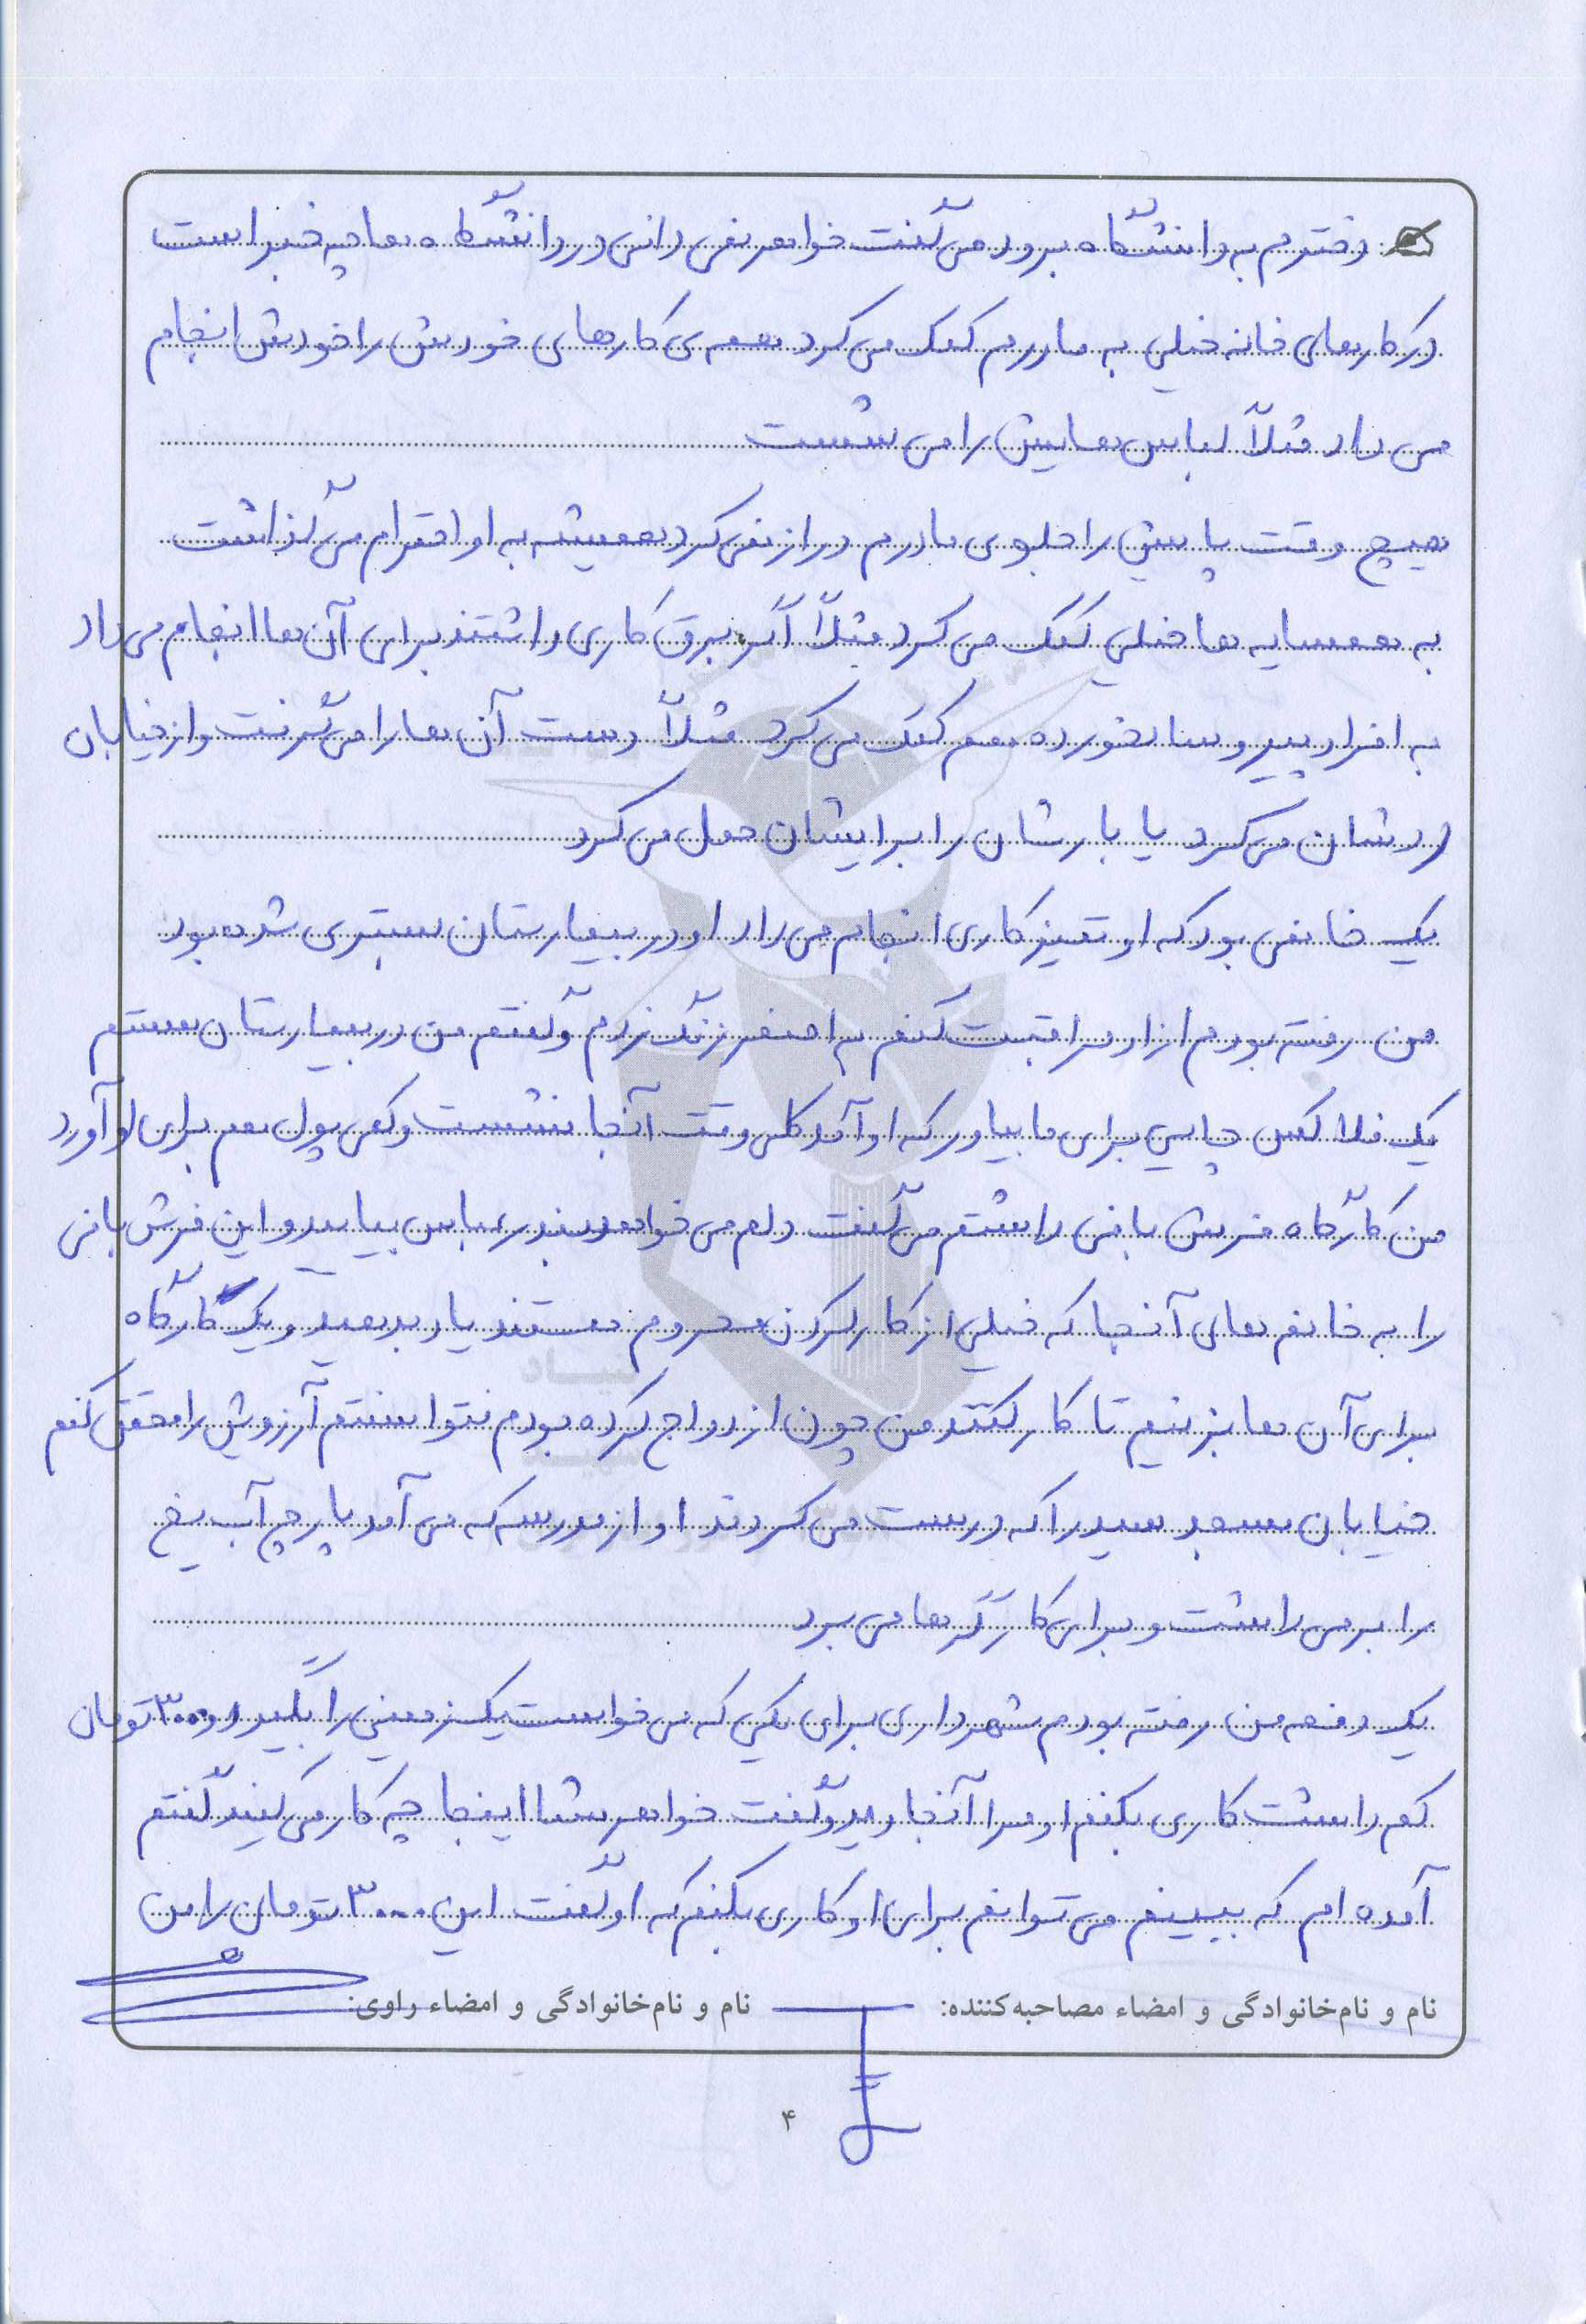 دخترم به دانشگاه برود می گفت خواهر نمی دانی در دانشگاه ها چه خبر است
در کارهای خانه خیلی به مادرم کمک می کرد همه ی کارهای خودش را خودش انجام
می داد مثلاً لباس هایش را می شست
هیچ وقت پایش را جلوی مادرم دراز نمی کرد همیشه به او احترام می گذاشت
به همسایه ها خیلی کمک می کرد مثلاً اگر برق کاری داشتند برای آن ها انجام می داد
به افراد پیر و سالخورده هم کمک می کرد مثلاً دست آن ها را می گرفت و از خیابان
ردشان می کرد یا بارشان را برایشان حمل می کرد
یک خانمی بود که او تمیز کاری انجام می داد او در بیمارستان بستری شده بود
من رفته بودم از او مراقبت کنم به اصغر زنگ زدم و گفتم من در بیمارستان هستم
یک فلاکس چایی برای ما بیاور که او آمد کلی وقت آنجا نشست و کمی پول هم برای او آورد
من کارگاه فرش بافی داشتم می گفت دلم می خواهد بندرعباس بیایید و این فرش بافی
را به خانم های آنجا که خیلی از کار کردن محروم هستند یاد بدهید و یک کارگاه
برای آن ها بزنیم تا کار کنند من چون ازدواج کرده بودم نتوانستم آرزویش را محقق کنم
خیابان مسجد سید را که درست می کردند او از مدرسه که می آمد پارچ آب یخ
را بر می داشت و برای کارگر ها می برد
یک دفعه من رفته بودم شهرداری برای یکی که می خواست یک زمینی را بگیرد و ۳۰۰۰ تومان
کم داشت کاری بکنم او مرا آنجا دید و گفت خواهر شما اینجا چه کار می کنید گفتم
آمده ام که ببینم می توانم برای او کاری بکنم که او گفت این ۳۰۰۰ تومان را من
نام و نام‌خانوادگی و امضاء مصاحبه‌کننده: نام و نام‌خانوادگی و امضاء راوی:
۴